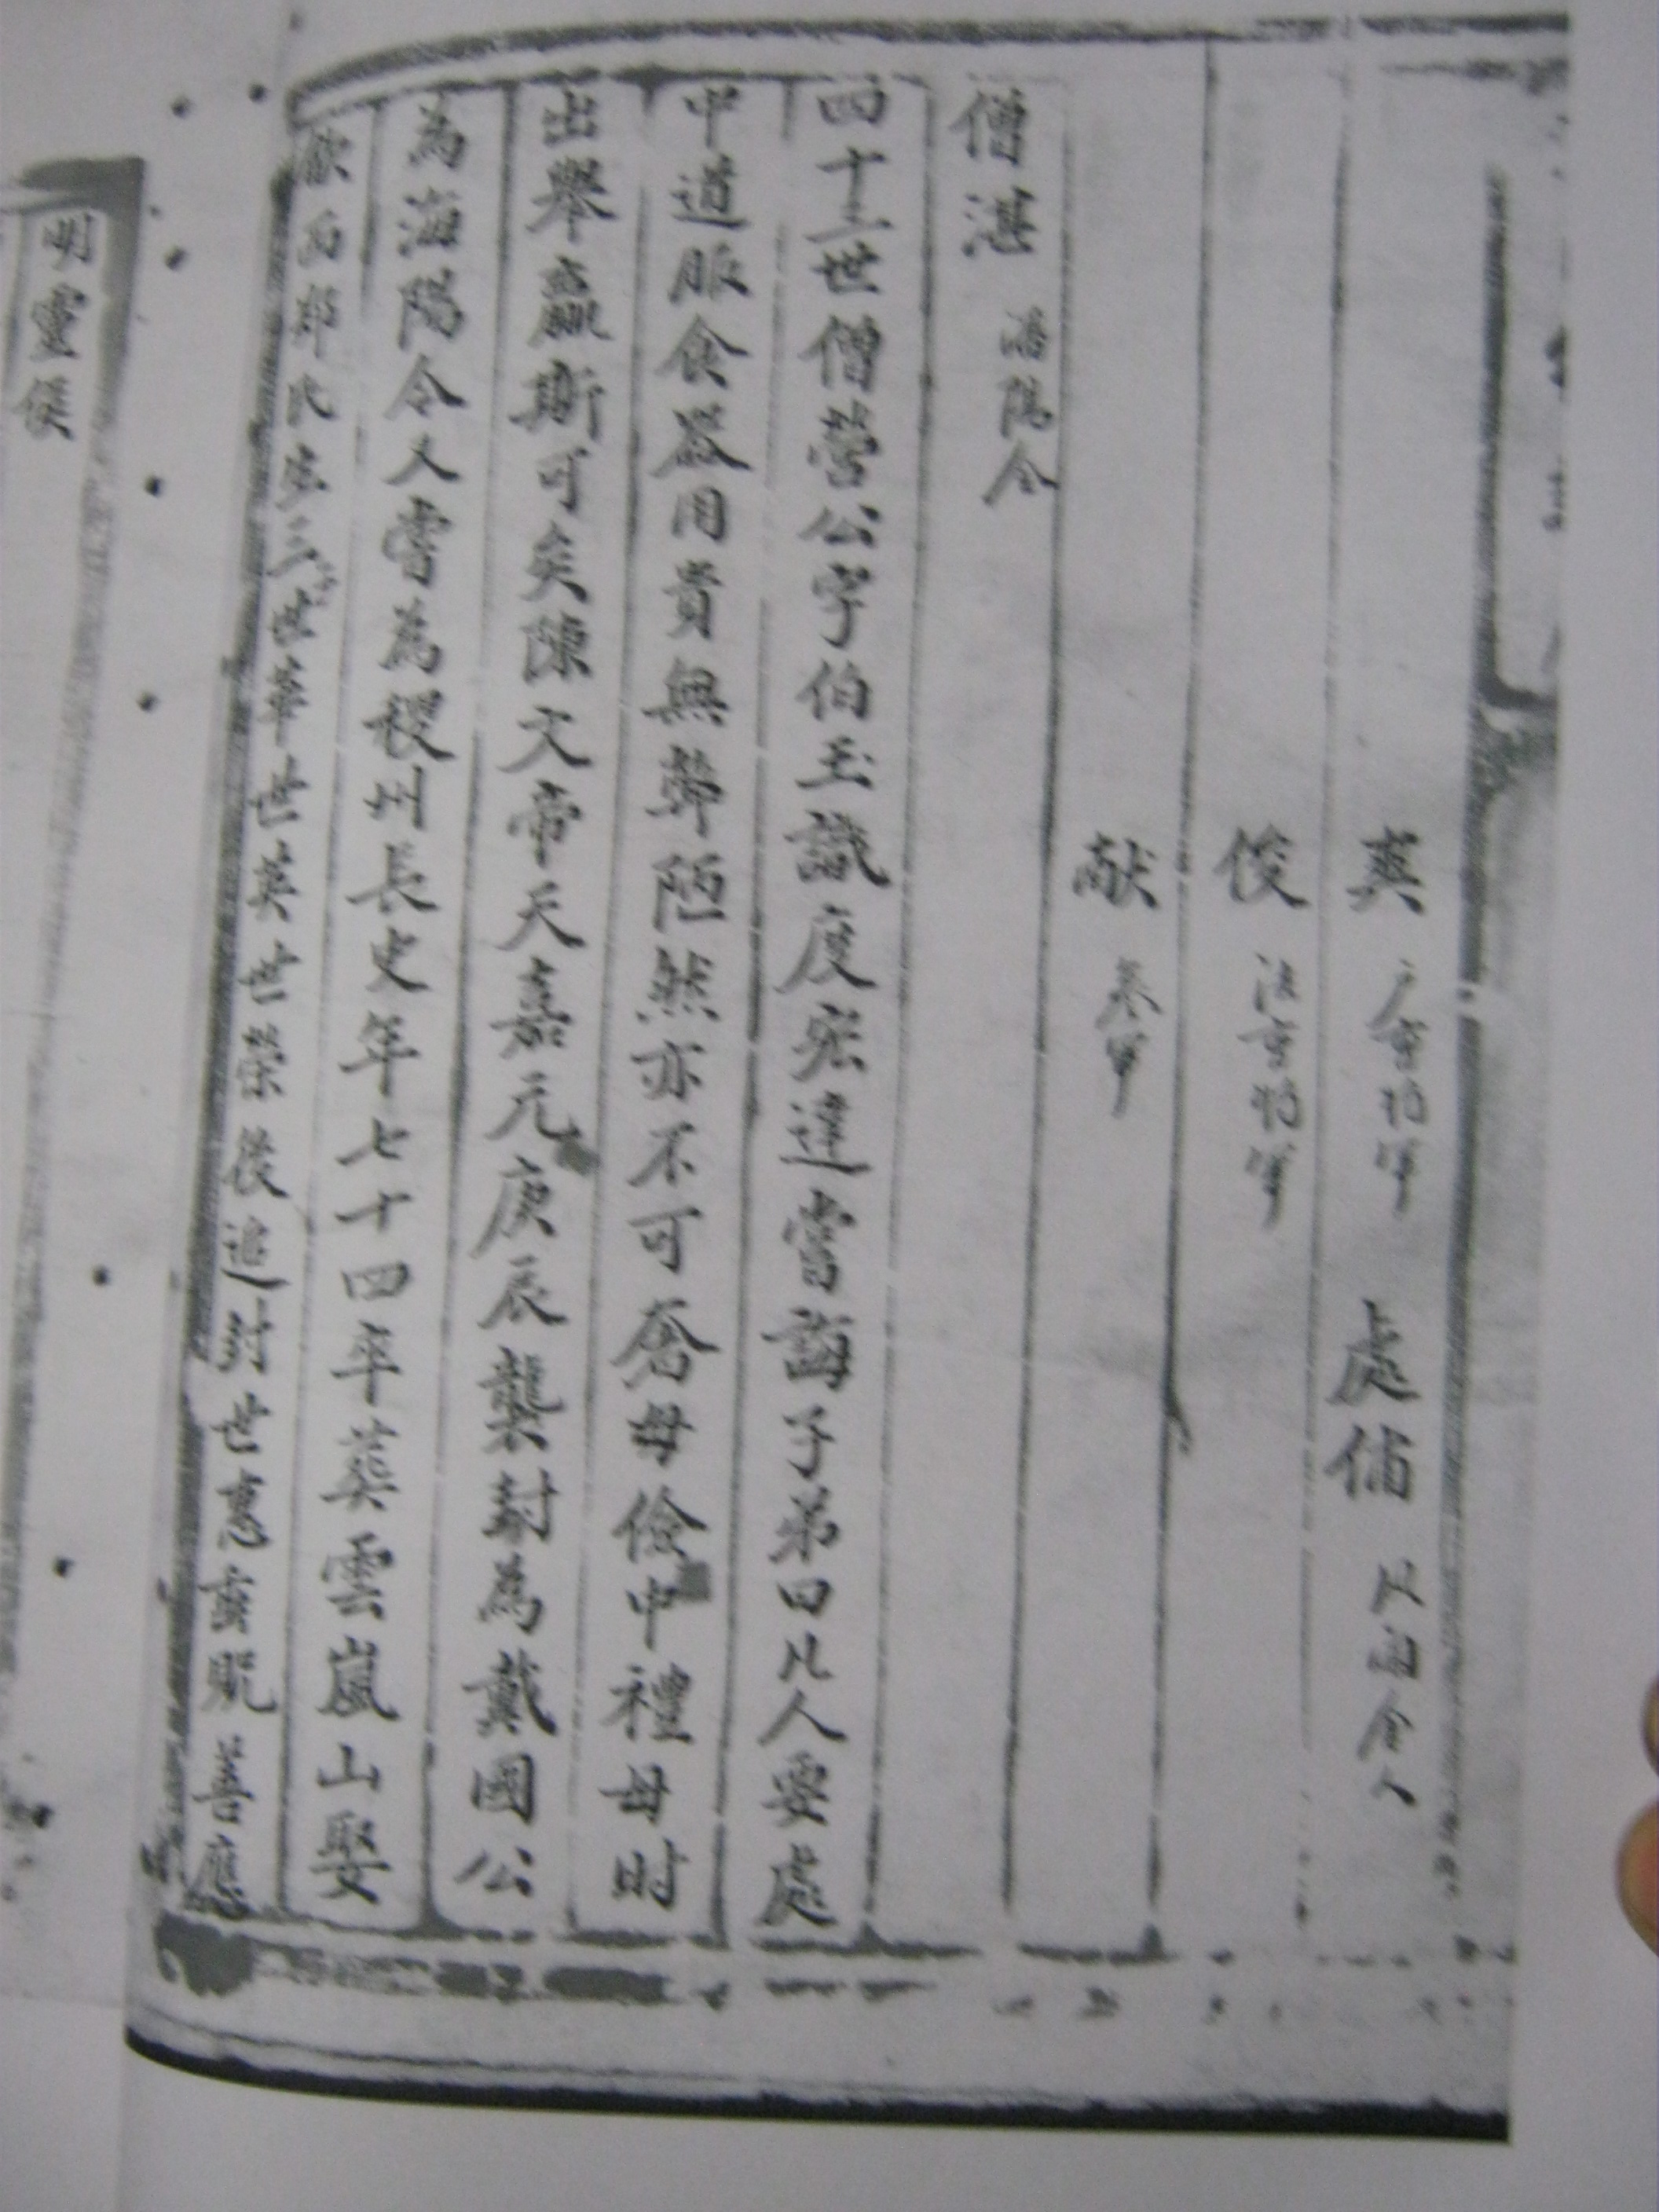 爽 戶曹將軍 處侑 沔南令
俊 法曹將軍
献 參軍
僧湛 溍陽令
四十三世僧瑩公字伯玉識度宏達嘗誨子弟曰凢人要處
中道服食器用貴無鄙陋然亦不可奢毋儉中禮毋时
出舉贏斯可矣陳文帝天嘉元庚辰襲封為戴國公
為海陽令又嘗為稷州長史年七十四卒葬雲嵐山娶
歙西鄭氏生三子世華世英世榮後追封世惠贶善應
明靈侯